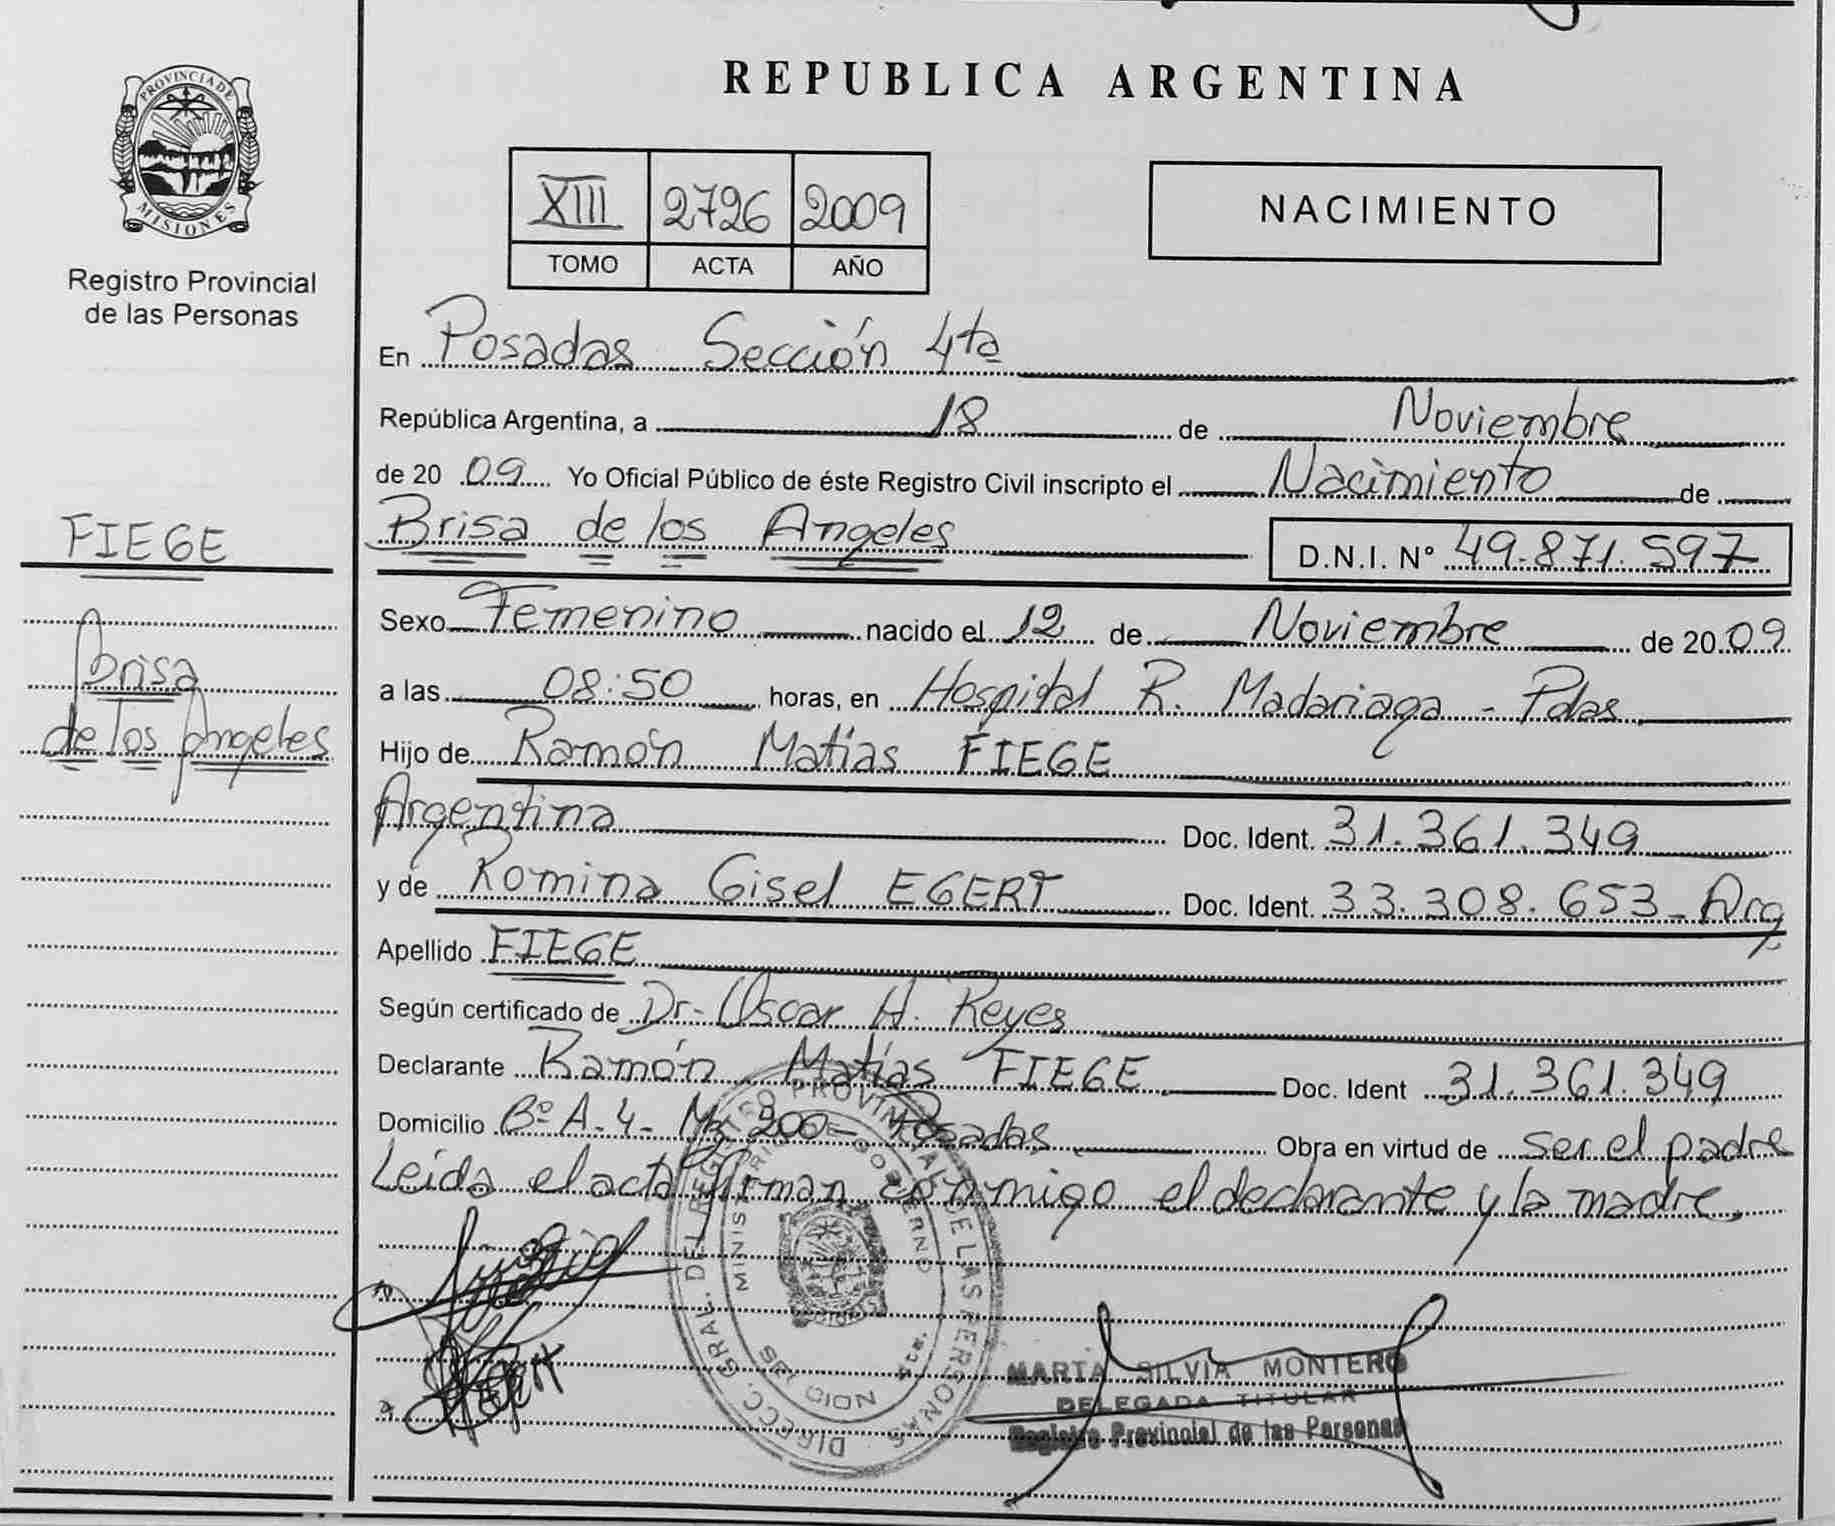 PROVINCIA DE
MISIONES
Registro Provincial
de las Personas
FIEGE
Brisa
de los Angeles
REPUBLICA ARGENTINA
XIII 2726 2009
TOMO ACTA AÑO
NACIMIENTO
En Posadas Sección 4ta
República Argentina, a 18 de Noviembre
de 20 09 Yo Oficial Público de éste Registro Civil inscripto el Nacimiento de
Brisa de los Angeles D.N.I. Nº 49.871.597
Sexo Femenino nacido el 12 de Noviembre de 20 09
a las 08:50 horas, en Hospital R. Madariaga - Pdas
Hijo de Ramón Matías FIEGE
Argentina Doc. Ident. 31.361.349
y de Romina Gisel EGERT Doc. Ident. 33.308.653 - Arg
Apellido FIEGE
Según certificado de Dr. Oscar H. Reyes
Declarante Ramón Matías FIEGE Doc. Ident 31.361.349
Domicilio Bº A-4- Mz 200- Posadas Obra en virtud de ser el padre
Leída el acta firman conmigo el declarante y la madre
DIRECC. GRAL. DEL REGISTRO PROVINCIAL DE LAS PERSONAS
MINISTERIO GOBIERNO
MARTA SILVIA MONTERO
DELEGADA TITULAR
Registro Provincial de las Personas